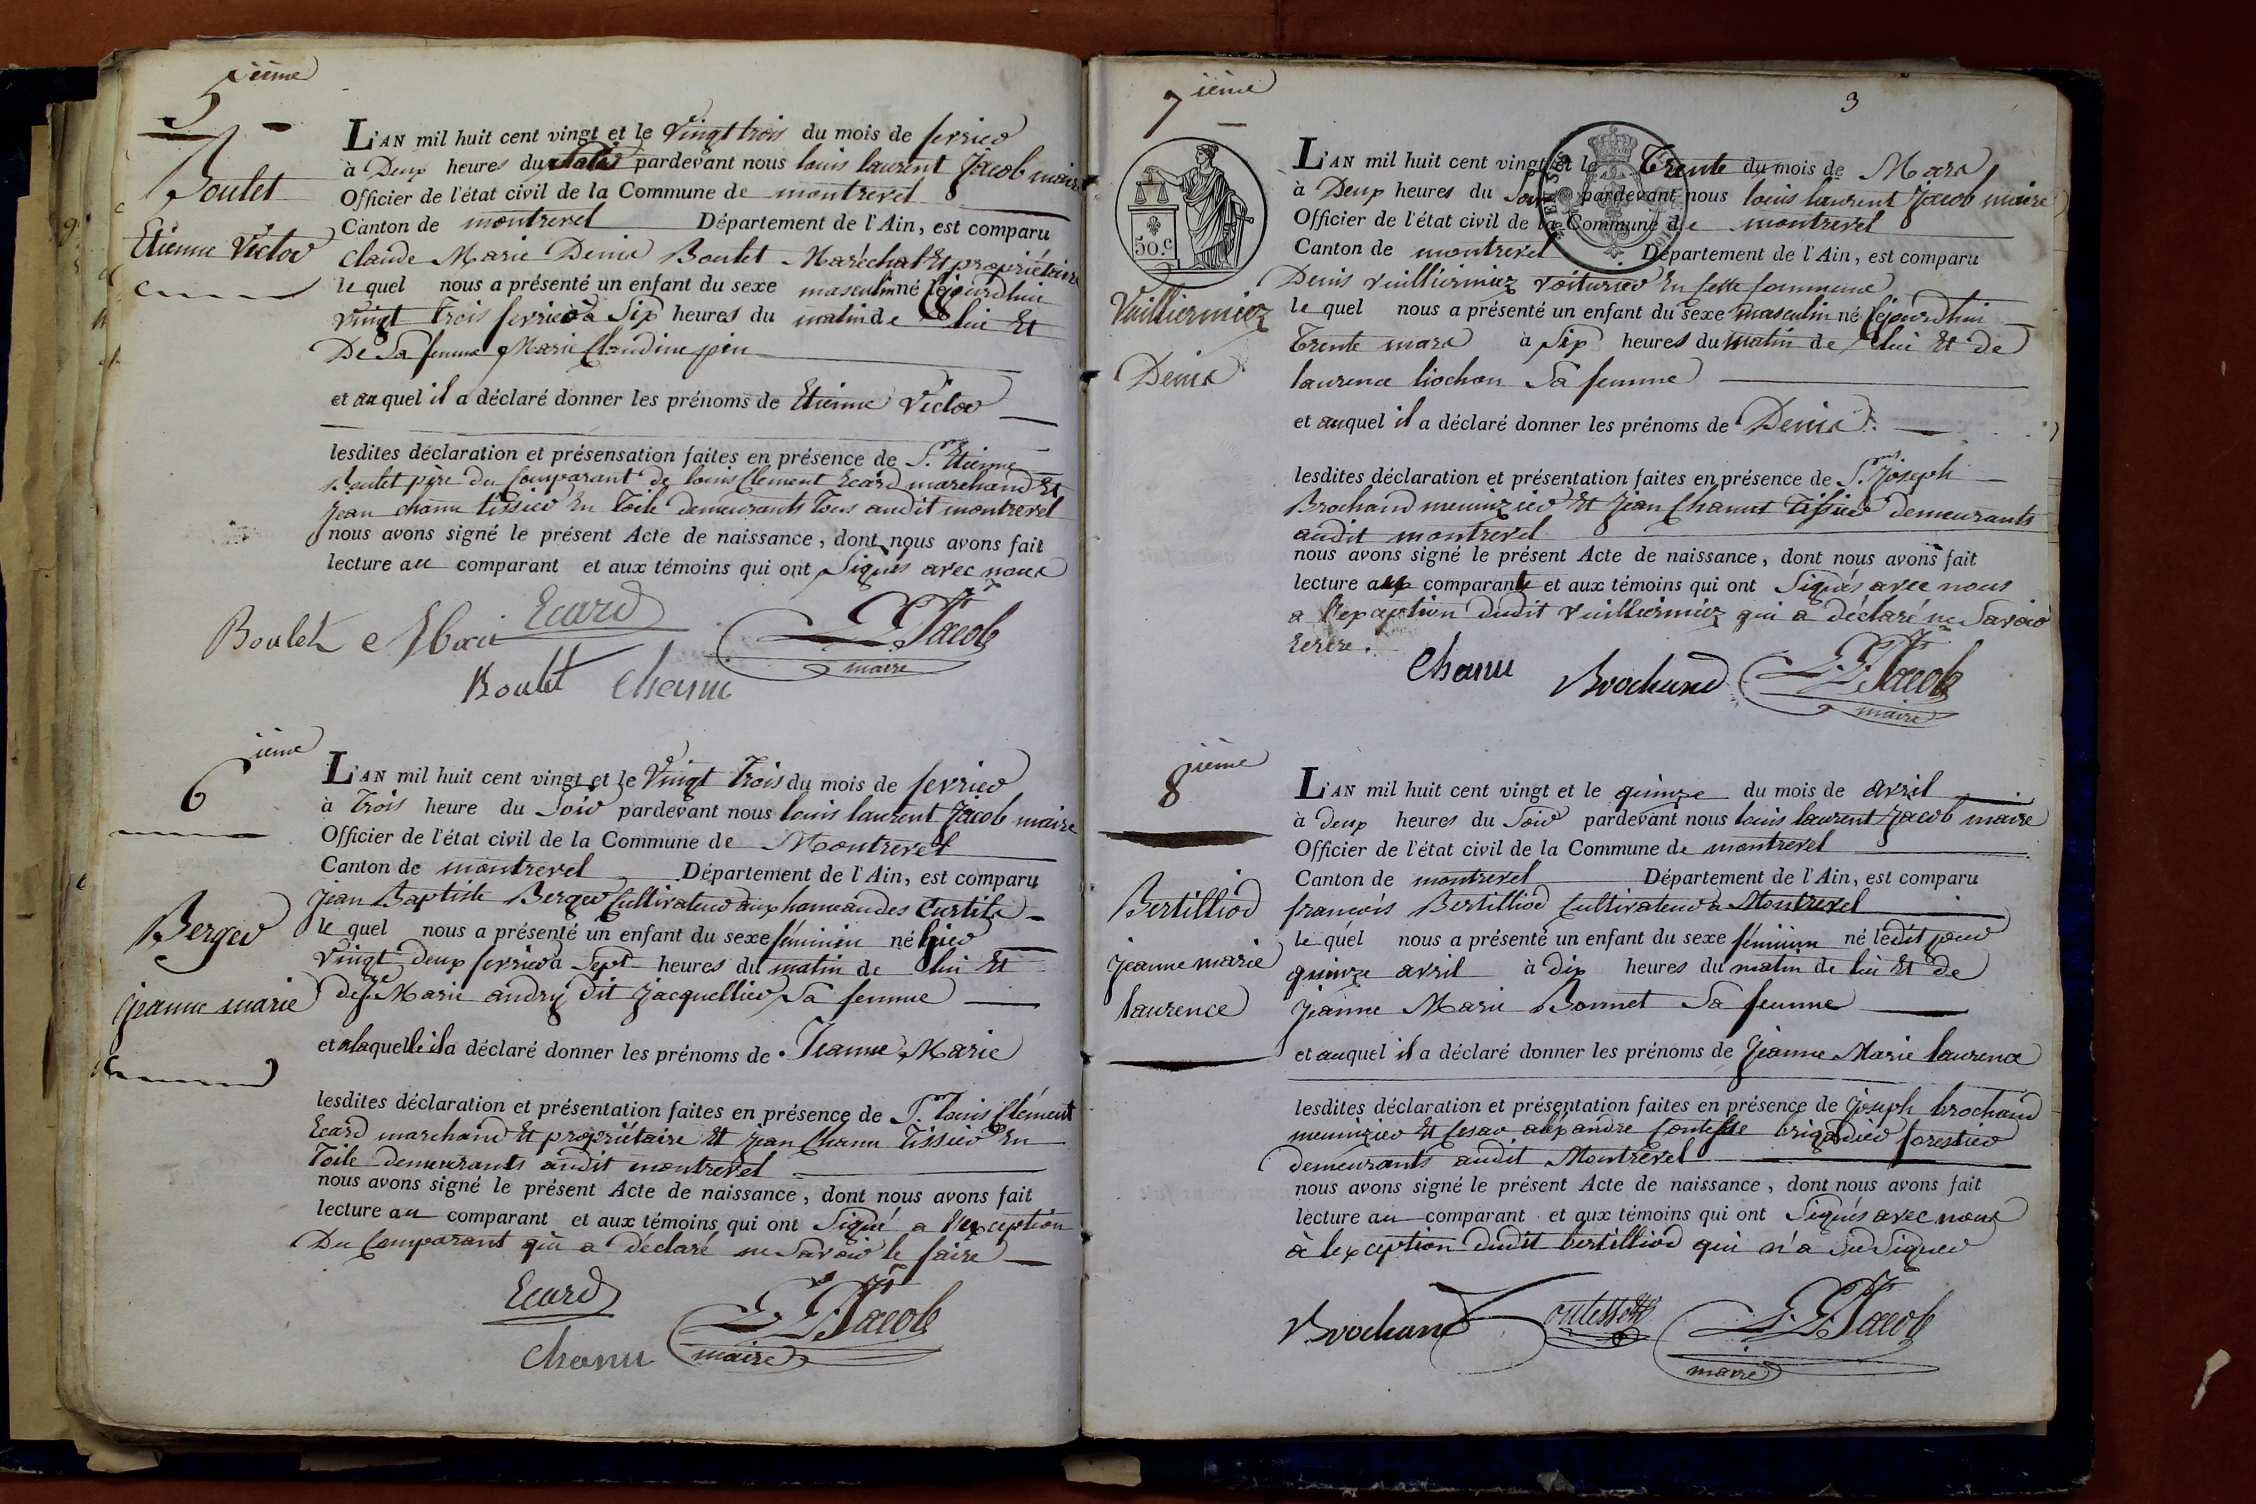 5 ième
Boulet
Etienne Victor
L'AN mil huit cent vingt et le Vingt trois du mois de fevrier
à Deux heures du pardevant nous louis laurent Jacob maire
Officier de l'état civil de la Commune de montrevel
Canton de montrevel Département de l'Ain, est comparu
Claude Marie Denis Boulet Maréchal Et propriétaire
le quel nous a présenté un enfant du sexe masculin né cejourdhui
vingt trois fevrier à Six heures du matin de lui Et
De Sa femme Marie Claudine
et au quel il a déclaré donner les prénoms de Etienne Victor
lesdites déclaration et présensation faites en présence de Sr. Etienne
Boulet père du Comparant de louis Clement Ecard marchand Et
Jean chanu tissier En Toile demeurants Tous audit montrevel
nous avons signé le présent Acte de naissance, dont nous avons fait
lecture au comparant et aux témoins qui ont Signés avec nous
Boulet Ecard L. L. Jacob
maire
Boulet Chanu
6 ième
Berger
jeanne marie
L'AN mil huit cent vingt et le Vingt Trois du mois de fevrier
à Trois heure du Soir pardevant nous louis laurent Jacob maire
Officier de l'état civil de la Commune de Montrevel
Canton de montrevel Département de l'Ain, est comparu
Jean Baptiste Berger Cultivateur aux hameau des Curtils
le quel nous a présenté un enfant du sexe féminin né hier
Vingt deux fevrier à Sept heures du matin de lui Et
de Marie andry dit Jacquellier Sa femme
et a laquelle il a déclaré donner les prénoms de Jeanne Marie
lesdites déclaration et présentation faites en présence de Sr. louis Clément
Ecard marchand Et propriétaire Et Jean Chanu Tissier En
Toile demeurants audit montrevel
nous avons signé le présent Acte de naissance, dont nous avons fait
lecture au comparant et aux témoins qui ont Signé a l'exception
Du Comparant qui a déclaré ne Savoir le faire
Ecard L. L. Jacob
Chanu maire
7 ième
3
50.c
Vuilliermiez
Denis
L'AN mil huit cent vingt et le Trente du mois de Mars
à Deux heures du Soir pardevant nous louis laurent Jacob maire
Officier de l'état civil de la Commune de montrevel
Canton de montrevel Département de l'Ain, est comparu
Denis vuilliermiez voiturier En cette Commune
le quel nous a présenté un enfant du sexe masculin né cejourdhui
Trente mars à Six heures du matin de lui Et de
laurence liochon Sa femme
et auquel il a déclaré donner les prénoms de Denis
lesdites déclaration et présentation faites en présence de Sr. Joseph
Brochand meunizier Et Jean Chanut Tissier demeurants
audit montrevel
nous avons signé le présent Acte de naissance, dont nous avons fait
lecture aux comparants et aux témoins qui ont Signés avec nous
a l'exception dudit vuilliermiez qui a déclaré ne Savoir
Ecrire.
Chanu Brochand L. L. Jacob
maire
8 ième
Bertilliod
jeanne marie
laurence
L'AN mil huit cent vingt et le quinze du mois de avril
à deux heures du Soir pardevant nous louis laurent Jacob maire
Officier de l'état civil de la Commune de montrevel
Canton de montrevel Département de l'Ain, est comparu
françois Bertilliod Cultivateur à Montrevel
le quel nous a présenté un enfant du sexe féminin né ledit jour
quinze avril à dix heures du matin de lui Et de
Jeanne Marie Bonnet Sa femme
et auquel il a déclaré donner les prénoms de Jeanne Marie laurence
lesdites déclaration et présentation faites en présence de joseph brochand
meunizier Et Cesar alexandre brigadier forestier
demeurants audit Montrevel
nous avons signé le présent Acte de naissance, dont nous avons fait
lecture au comparant et aux témoins qui ont Signés avec nous
à l'exception dudit bertilliod qui n'a Su Signer
Brochand L. L. Jacob
maire